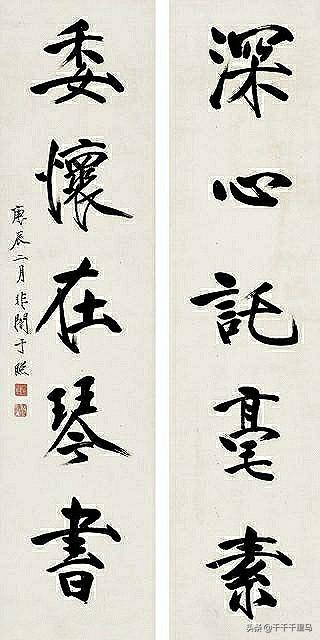 深心託毫素
委懷在琴書
庚辰二月非闇于照
头条@千千千里马